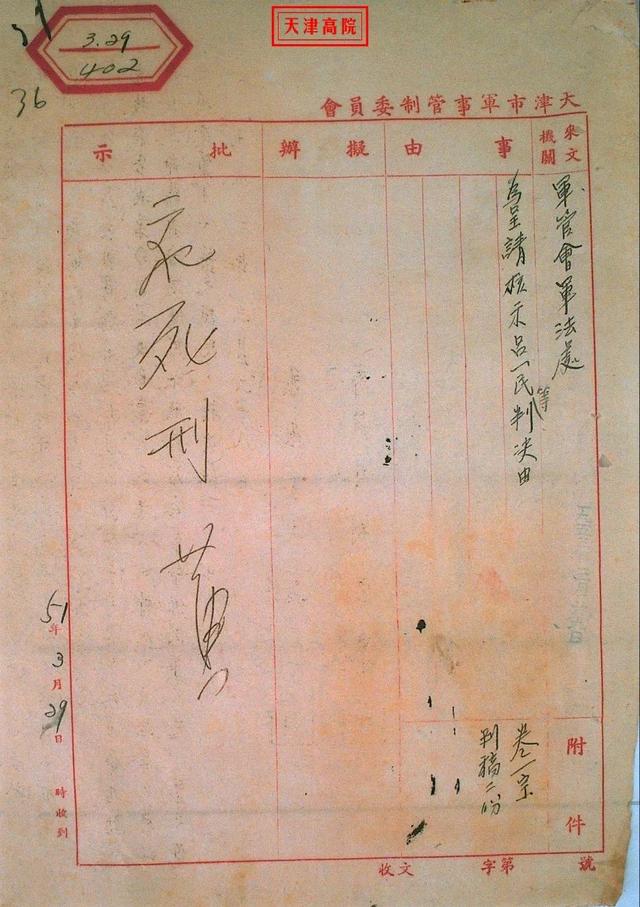 天津高院
3.29
402
36
天津市軍事管制委員會
來文機關
軍管會軍法處
事由
為呈請核示呂一民等判決由
附件
卷一宗
判稿二份
擬辦
批示
处死刑 黄
51年3月29日 時收到
收文 字第 號